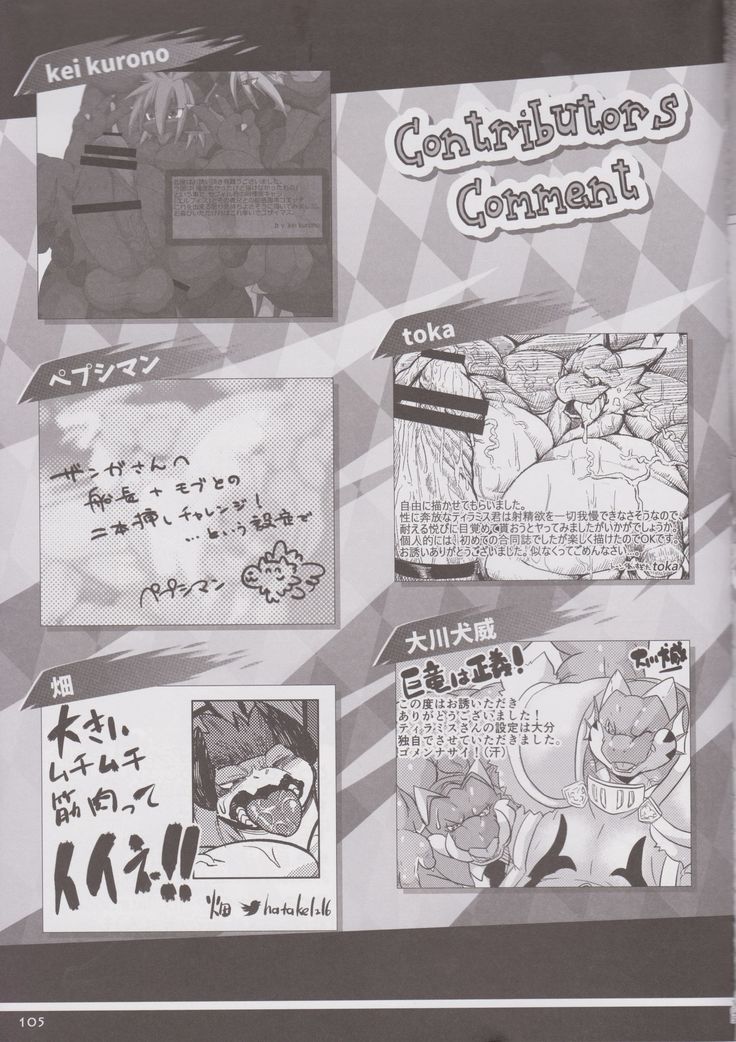 kei kurono
Contributors
Comment
by kei kurono
ペプシマン
ザンガさんへ
船長+モブとの
二本挿しチャレンジ!
…という設定で
ペプシマン
toka
自由に描かせてもらいました。
性に奔放なティラミス君は射精欲を一切我慢できなさそうなので、
耐える悦びに目覚めて貰おうとヤってみましたがいかがでしょうか。
個人的には、初めての合同誌でしたが楽しく描けたのでOKです。
お誘いありがとうございました。似なくってごめんなさい…
toka
畑
大きい
ムチムチ
筋肉って
イイネ!!
畑 hatake1216
大川犬威
巨竜は正義!
大川犬威
この度はお誘いいただき
ありがとうございました!
ティラミスさんの設定は大分
独自でさせていただきました。
ゴメンナサイ!(汗)
105